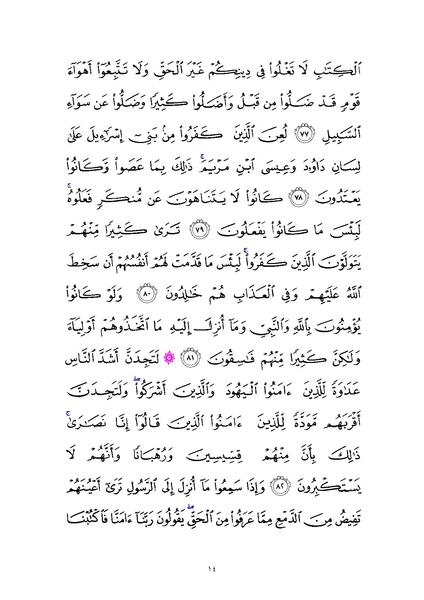 ٱلْكِتَٰبِ لَا تَغْلُوا۟ فِى دِينِكُمْ غَيْرَ ٱلْحَقِّ وَلَا تَتَّبِعُوٓا۟ أَهْوَآءَ
قَوْمٍ قَدْ ضَلُّوا۟ مِن قَبْلُ وَأَضَلُّوا۟ كَثِيرًا وَضَلُّوا۟ عَن سَوَآءِ
ٱلسَّبِيلِ ﴿٧٧﴾ لُعِنَ ٱلَّذِينَ كَفَرُوا۟ مِنۢ بَنِىٓ إِسْرَٰٓءِيلَ عَلَىٰ
لِسَانِ دَاوُۥدَ وَعِيسَى ٱبْنِ مَرْيَمَ ۚ ذَٰلِكَ بِمَا عَصَوا۟ وَّكَانُوا۟
يَعْتَدُونَ ﴿٧٨﴾ كَانُوا۟ لَا يَتَنَاهَوْنَ عَن مُّنكَرٍ فَعَلُوهُ ۚ
لَبِئْسَ مَا كَانُوا۟ يَفْعَلُونَ ﴿٧٩﴾ تَرَىٰ كَثِيرًا مِّنْهُمْ
يَتَوَلَّوْنَ ٱلَّذِينَ كَفَرُوا۟ ۚ لَبِئْسَ مَا قَدَّمَتْ لَهُمْ أَنفُسُهُمْ أَن سَخِطَ
ٱللَّهُ عَلَيْهِمْ وَفِى ٱلْعَذَابِ هُمْ خَٰلِدُونَ ﴿٨٠﴾ وَلَوْ كَانُوا۟
يُؤْمِنُونَ بِٱللَّهِ وَٱلنَّبِىِّ وَمَآ أُنزِلَ إِلَيْهِ مَا ٱتَّخَذُوهُمْ أَوْلِيَآءَ
وَلَٰكِنَّ كَثِيرًا مِّنْهُمْ فَٰسِقُونَ ﴿٨١﴾ ۞ لَتَجِدَنَّ أَشَدَّ ٱلنَّاسِ
عَدَٰوَةً لِّلَّذِينَ ءَامَنُوا۟ ٱلْيَهُودَ وَٱلَّذِينَ أَشْرَكُوا۟ ۖ وَلَتَجِدَنَّ
أَقْرَبَهُم مَّوَدَّةً لِّلَّذِينَ ءَامَنُوا۟ ٱلَّذِينَ قَالُوٓا۟ إِنَّا نَصَٰرَىٰ ۚ
ذَٰلِكَ بِأَنَّ مِنْهُمْ قِسِّيسِينَ وَرُهْبَانًا وَأَنَّهُمْ لَا
يَسْتَكْبِرُونَ ﴿٨٢﴾ وَإِذَا سَمِعُوا۟ مَآ أُنزِلَ إِلَى ٱلرَّسُولِ تَرَىٰٓ أَعْيُنَهُمْ
تَفِيضُ مِنَ ٱلدَّمْعِ مِمَّا عَرَفُوا۟ مِنَ ٱلْحَقِّ ۖ يَقُولُونَ رَبَّنَآ ءَامَنَّا فَٱكْتُبْنَا
١٤